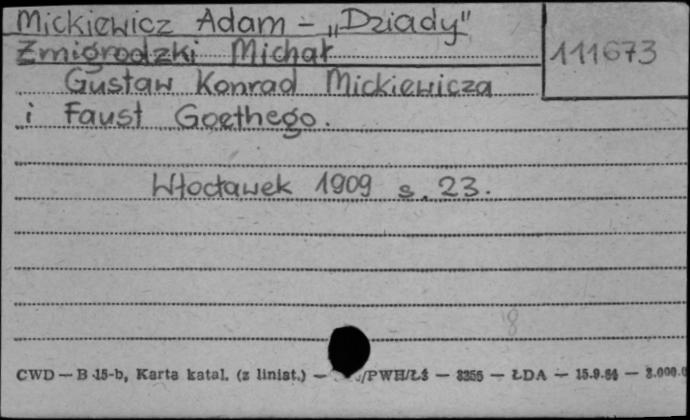 Mickiewicz Adam – „Dziady"
Żmigrodzki Michał
111673
Gustaw Konrad Mickiewicza
i Faust Goethego.
Włocławek 1909 s. 23.
8
CWD — B 15-b, Karta katal. (z liniat.) — /PWH/ŁŚ — 8355 — ŁDA — 15.9.54 —